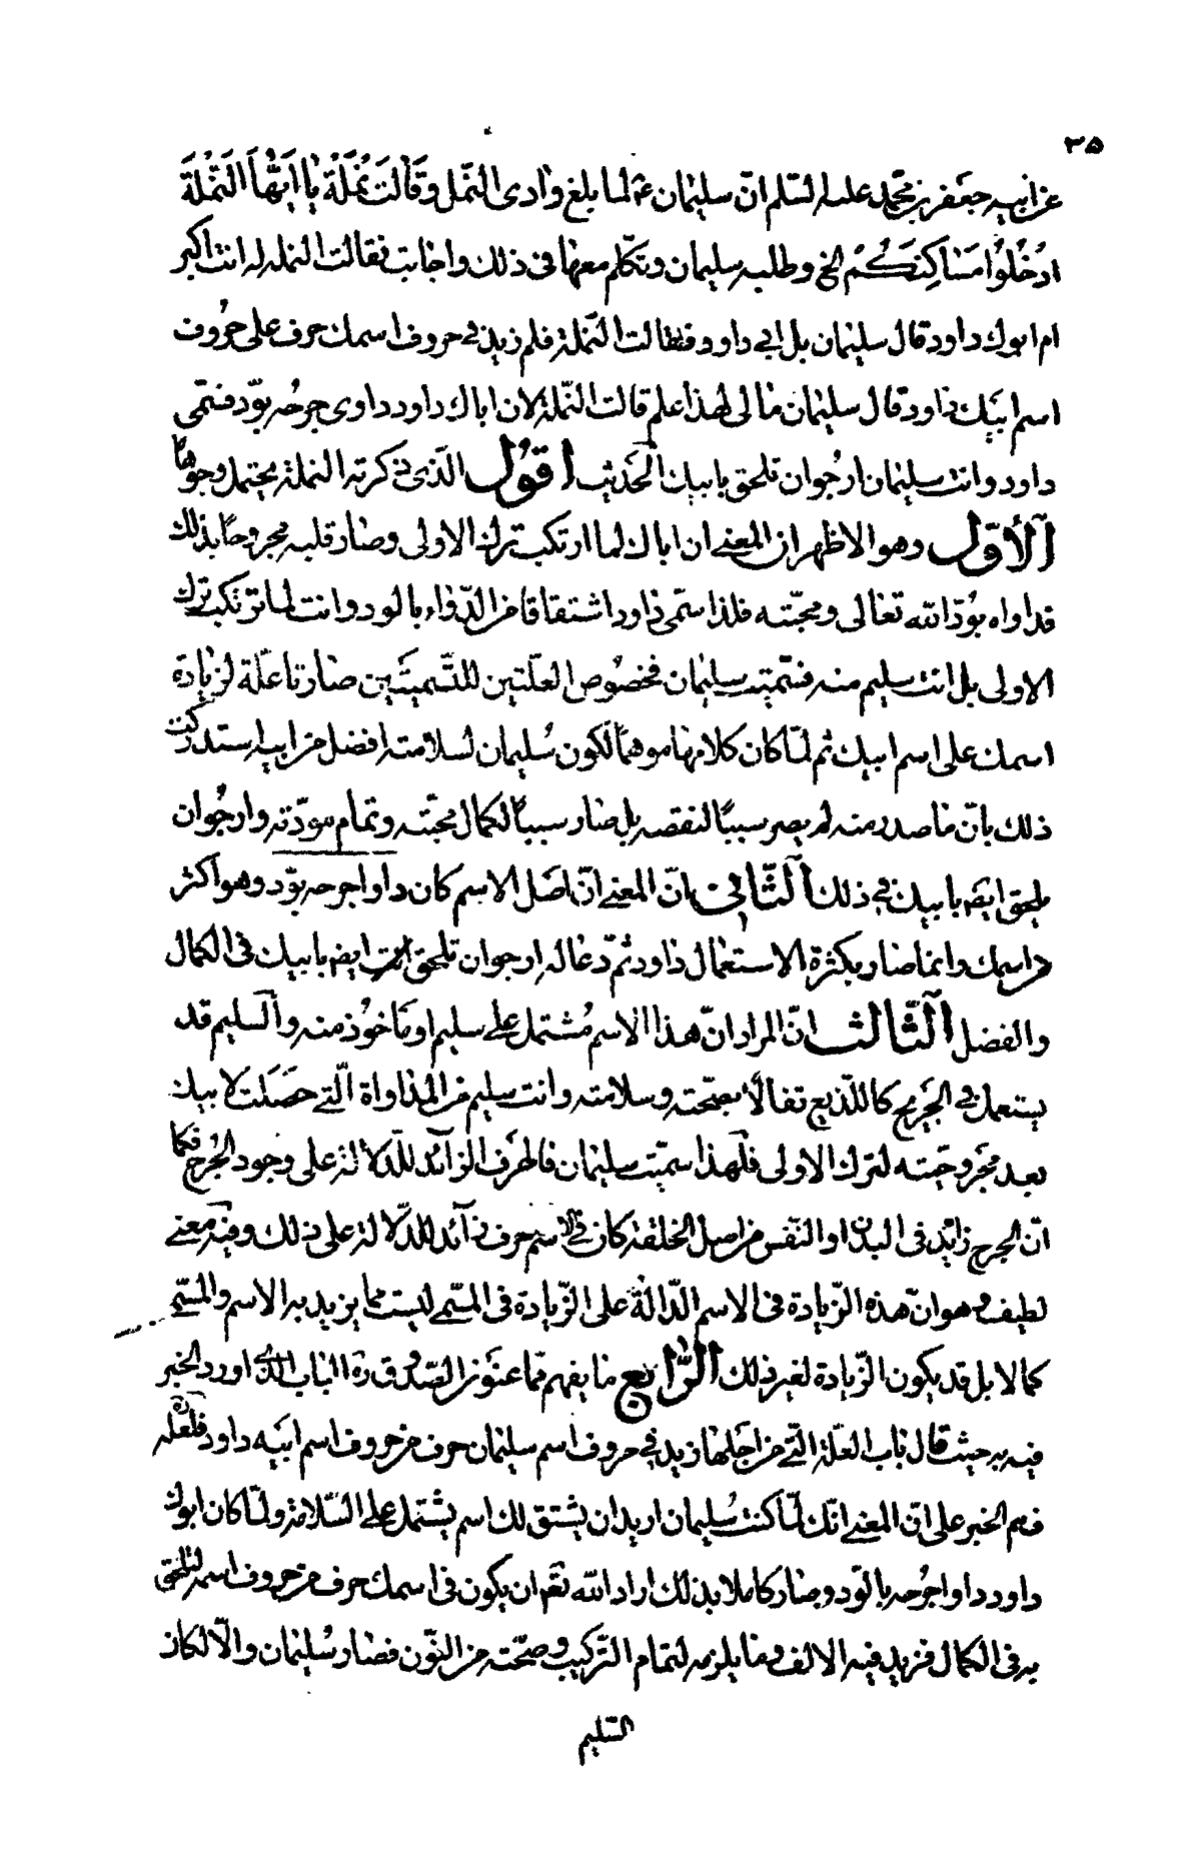 ٣٥
عن ابيه جعفر بن محمد عليه السلم انّ سليمان ع لما بلغ وادى النّمل وقَالَت نَمْلَة يا اَيُّهاَ النَّمْلَ
ادْخُلُوْا مَسَاكِنَكُمْ الخ وطلبه سليمان وتكلّم معها فى ذلك واجابت فقالت النمله له انت اكبر
ام ابوك داود قال سليمان بل ابى داود فقالت النّملة فلم زيد فى حروف اسمك حرف على حروف
اسم ابيك داود قال سليمان مالى بهذا علم قالت النّملة لان اباك داود داوى جرحه بودّ فسمّى
داود وانت سليمان ارجوان تلحق بابيك الحَديث اقوُل الّذى ذكرته النملة يحتمل وجوهاً
اَلأوّل وهو الاظهر ان المعنى ان اباك لما ارتكب ترك الاولى وصار قلبه مجروحًا بذلك
فداواه بودّ الله تعالى ومحبّته فلذا سمّى داود اشتقاقا من الدّواء بالود وانت لما لم ترتكب ترك
الاولى بل انت سليم منه فسمّيت سليمان فخصُوص العلّتين للتّسميتَين صارتا علّة لزيادة
اسمك على اسم ابيك ثم لمّا كان كلامها موهمًا لكون سُليمان لسلامته افضل من ابيه استدركت
ذلك بانّ ما صدر منه لم يصر سببًا لنقصه بل صار سببًا لكمال محبّته وتمام مودّته وارجُوان
يلحق ايضا بابيك فى ذلك اَلثّانى انّ المعنى انّ اصَل الاسم كان داوا جرحه بودّ وهو اكثر
من اسمك وانما صار بكثرة الاستعمال داود ثمّ دعا له ارجوان تلحق انت ايضا بابيك فى الكمال
والفضل اَلثّالث انّ المراد انّ هذا الاسم مُشتمل على سليم او مَاخوُذ منه والسليم قد
يستعمل فى الجَريح كاللّديغ تفالاً بصحّته وسلامته وانت سليم من المداواة الّتى حصَلت لابيك
بعد مجروحيّته لترك الاولى فلهذا سمّيت سليمان فالحَرف الزائد للّدلالة على وجود الجُرح فكما
انّ الجرح زائد فى البدن او النّفس من اصل الخلقة كان فى الاسم حرف زآئد للدّلالة على ذلك وفيه معنى
لطيف وهو انّ هذه الزّيادة فى الاسم الدّالة على الزّيادة فى المسمّى ليست مما يزيد به الاسم والمسمّى
كمالا بل قد يكون الزّيادة لغير ذلك الرّابع ما يفهم ممّا عنون الصّدوق ره الباب الذى اورد الخبر
فيه به حيث قال باب العلّة الّتى من اجَلها زيد فى حروف اسم سليمان حرف من حروف اسم ابيه داود فلعلّه ره
فهم الخبر على انّ المعنى انّك لمّا كنت سُليمان اريد ان يشتق لك اسم يشتمل على السّلامة ولمّا كان ابوك
داود داوا جرُحه بالود وصار كاملا بذلك اراد الله تعَ ان يكون فى اسمك حرف من حروف اسمه لتلحق
به فى الكمال فزيد فيه الالف وما يلزمه لتمام التّركيب وصحّته من النّون فصار سُليمان والّا لكان
السّليم